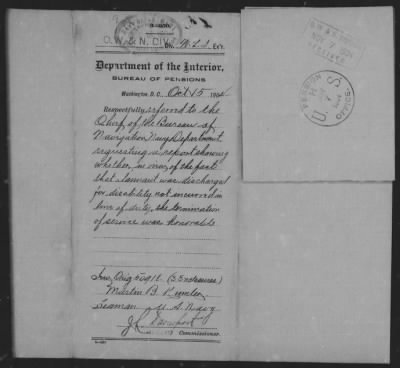 O. W. & N. DIV.
M.L.S., Ex'r.
Department of the Interior,
BUREAU OF PENSIONS
Washington, D. C., Oct 15, 190
Respectfully referred to the
Chief of the Bureau of
Navigation, Navy Department
requesting a report showing
whether, in view of the fact
that claimant was discharged
for disability not incurred in
line of duty, the termination
of service was honorable
Inv. Orig (3 Enclosures)
Martin B.
Seaman U. S. Navy
Commissioner.
NOV 7
RECEIVED
PENSION
U S